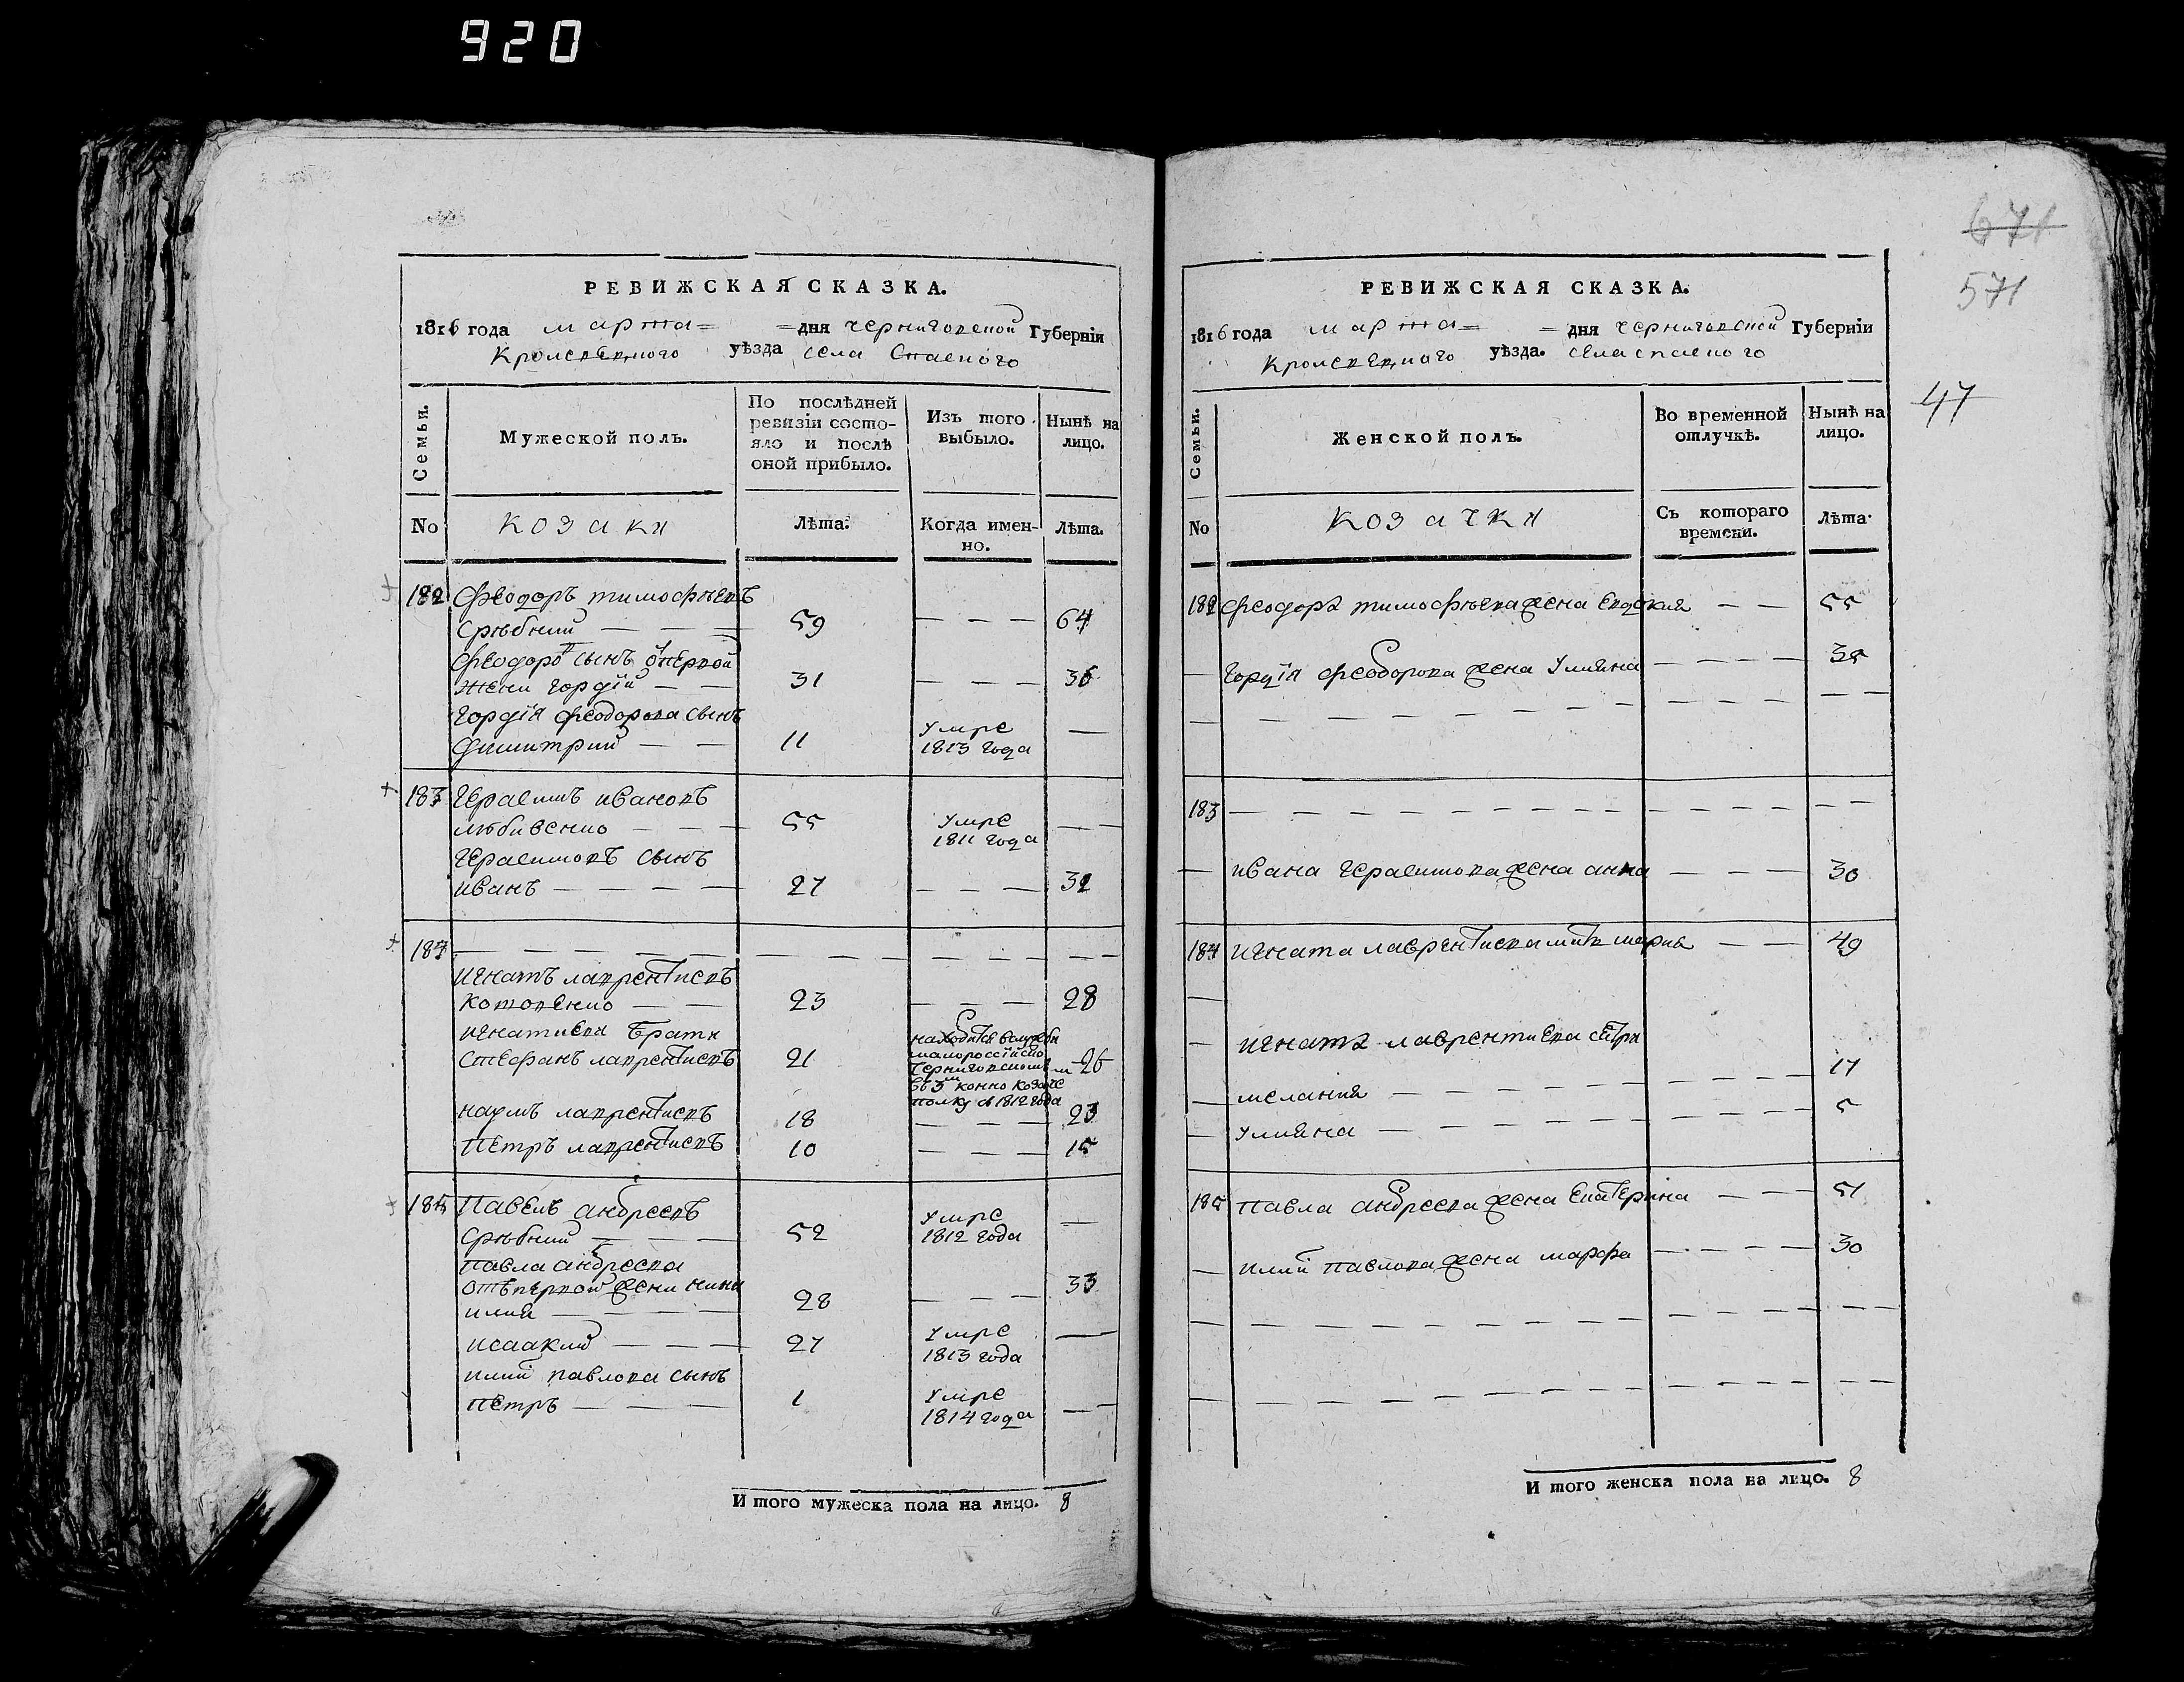 920
671
571
47
РЕВИЖСКАЯ СКАЗКА.
1816 года марта = = дня черниговской Губерніи
Кролевецкого уѣзда села Спаского
Семьи.
Мужеской полъ.
По послѣдней ревизіи состояло и послѣ оной прибыло.
Изъ того выбыло.
Нынѣ на лицо.
No
козаки
Лѣта.
Когда именно.
Лѣта.
182 Феодоръ тимофѣевъ
Срѣбний — — — 59 — — — 64
Феодоровъ сынъ отъ первой
жени гордій — — 31 — — — 36
гордія феодорова сынъ
димитрий — — 11 умре 1813 года —
183 герасимъ ивановъ
любивенко — — — 55 умре 1811 года — —
герасимовъ сынъ
иванъ — — — — 27 — — — 32
184 — — — — — — — — — — —
игнатъ лаврентиевъ
котовенко — — 23 — — — 28
игнатиева брати
стефанъ лаврентиевъ 21 находится в службе малороссійско черниговском въ 3м конно козаче полку с 1812 года 26
наумъ лаврентиевъ 18 — — — 23
Петръ лаврентиевъ 10 — — — 15
185 Павелъ андреевъ
Срѣбний — — — 52 умре 1812 года —
павла андреева
отъ первой жени сини
илия — — — — 28 — — — 33
исаакий — — — 27 умре 1813 года —
илии павлова сынъ
петръ — — — 1 умре 1814 года — —
И того мужеска пола на лицо. 8
РЕВИЖСКАЯ СКАЗКА.
1816 года марта = = дня черниговской Губерніи
Кролевецкого уѣзда. села спаского
Семьи.
Женской полъ.
Во временной отлучкѣ.
Нынѣ на лицо.
No
козачки
Съ котораго времени.
Лѣта.
182 феодора тимофѣева жена Евдокия — — 55
— гордія феодорова жена улияна — — — — 35
— — — — — — — — — — — — — —
183 — — — — — — — — — — — — —
— ивана герасимова жена анна — — — 30
184 игната лаврентиева мать мария — — 49
—
— игната лаврентиева сестри
— мелания — — — — — — — — — 17
— улияна — — — — — — — — — 5
185 павла андреева жена Екатерина — — 51
— илии павлова жена марфа — — — — 30
— — — — — — — — — — — — —
— — — — — — — — — — — — —
И того женска пола на лицо. 8